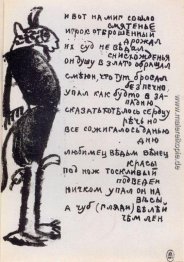 и вот на миг сошло
смятенье
игрок отерошенный
дрожал
их суд не ведал
снисхожденья
он душу в злато обращал
смеюн, что тут бродил
безпечно
упал как будто в за-
падню
сказать хотелось сердцу
речь но
все сожигалось данью
дню
любимец ведьм венец
красы
под нож тоскливый
подведен
ничком упал он на
весы
а чуб белей
чем лен
www.malereikopie.de